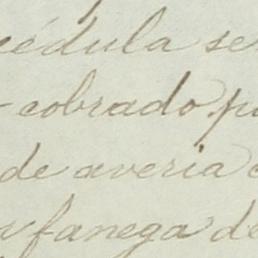 cédula se
cobrado p
de averia
fanega de